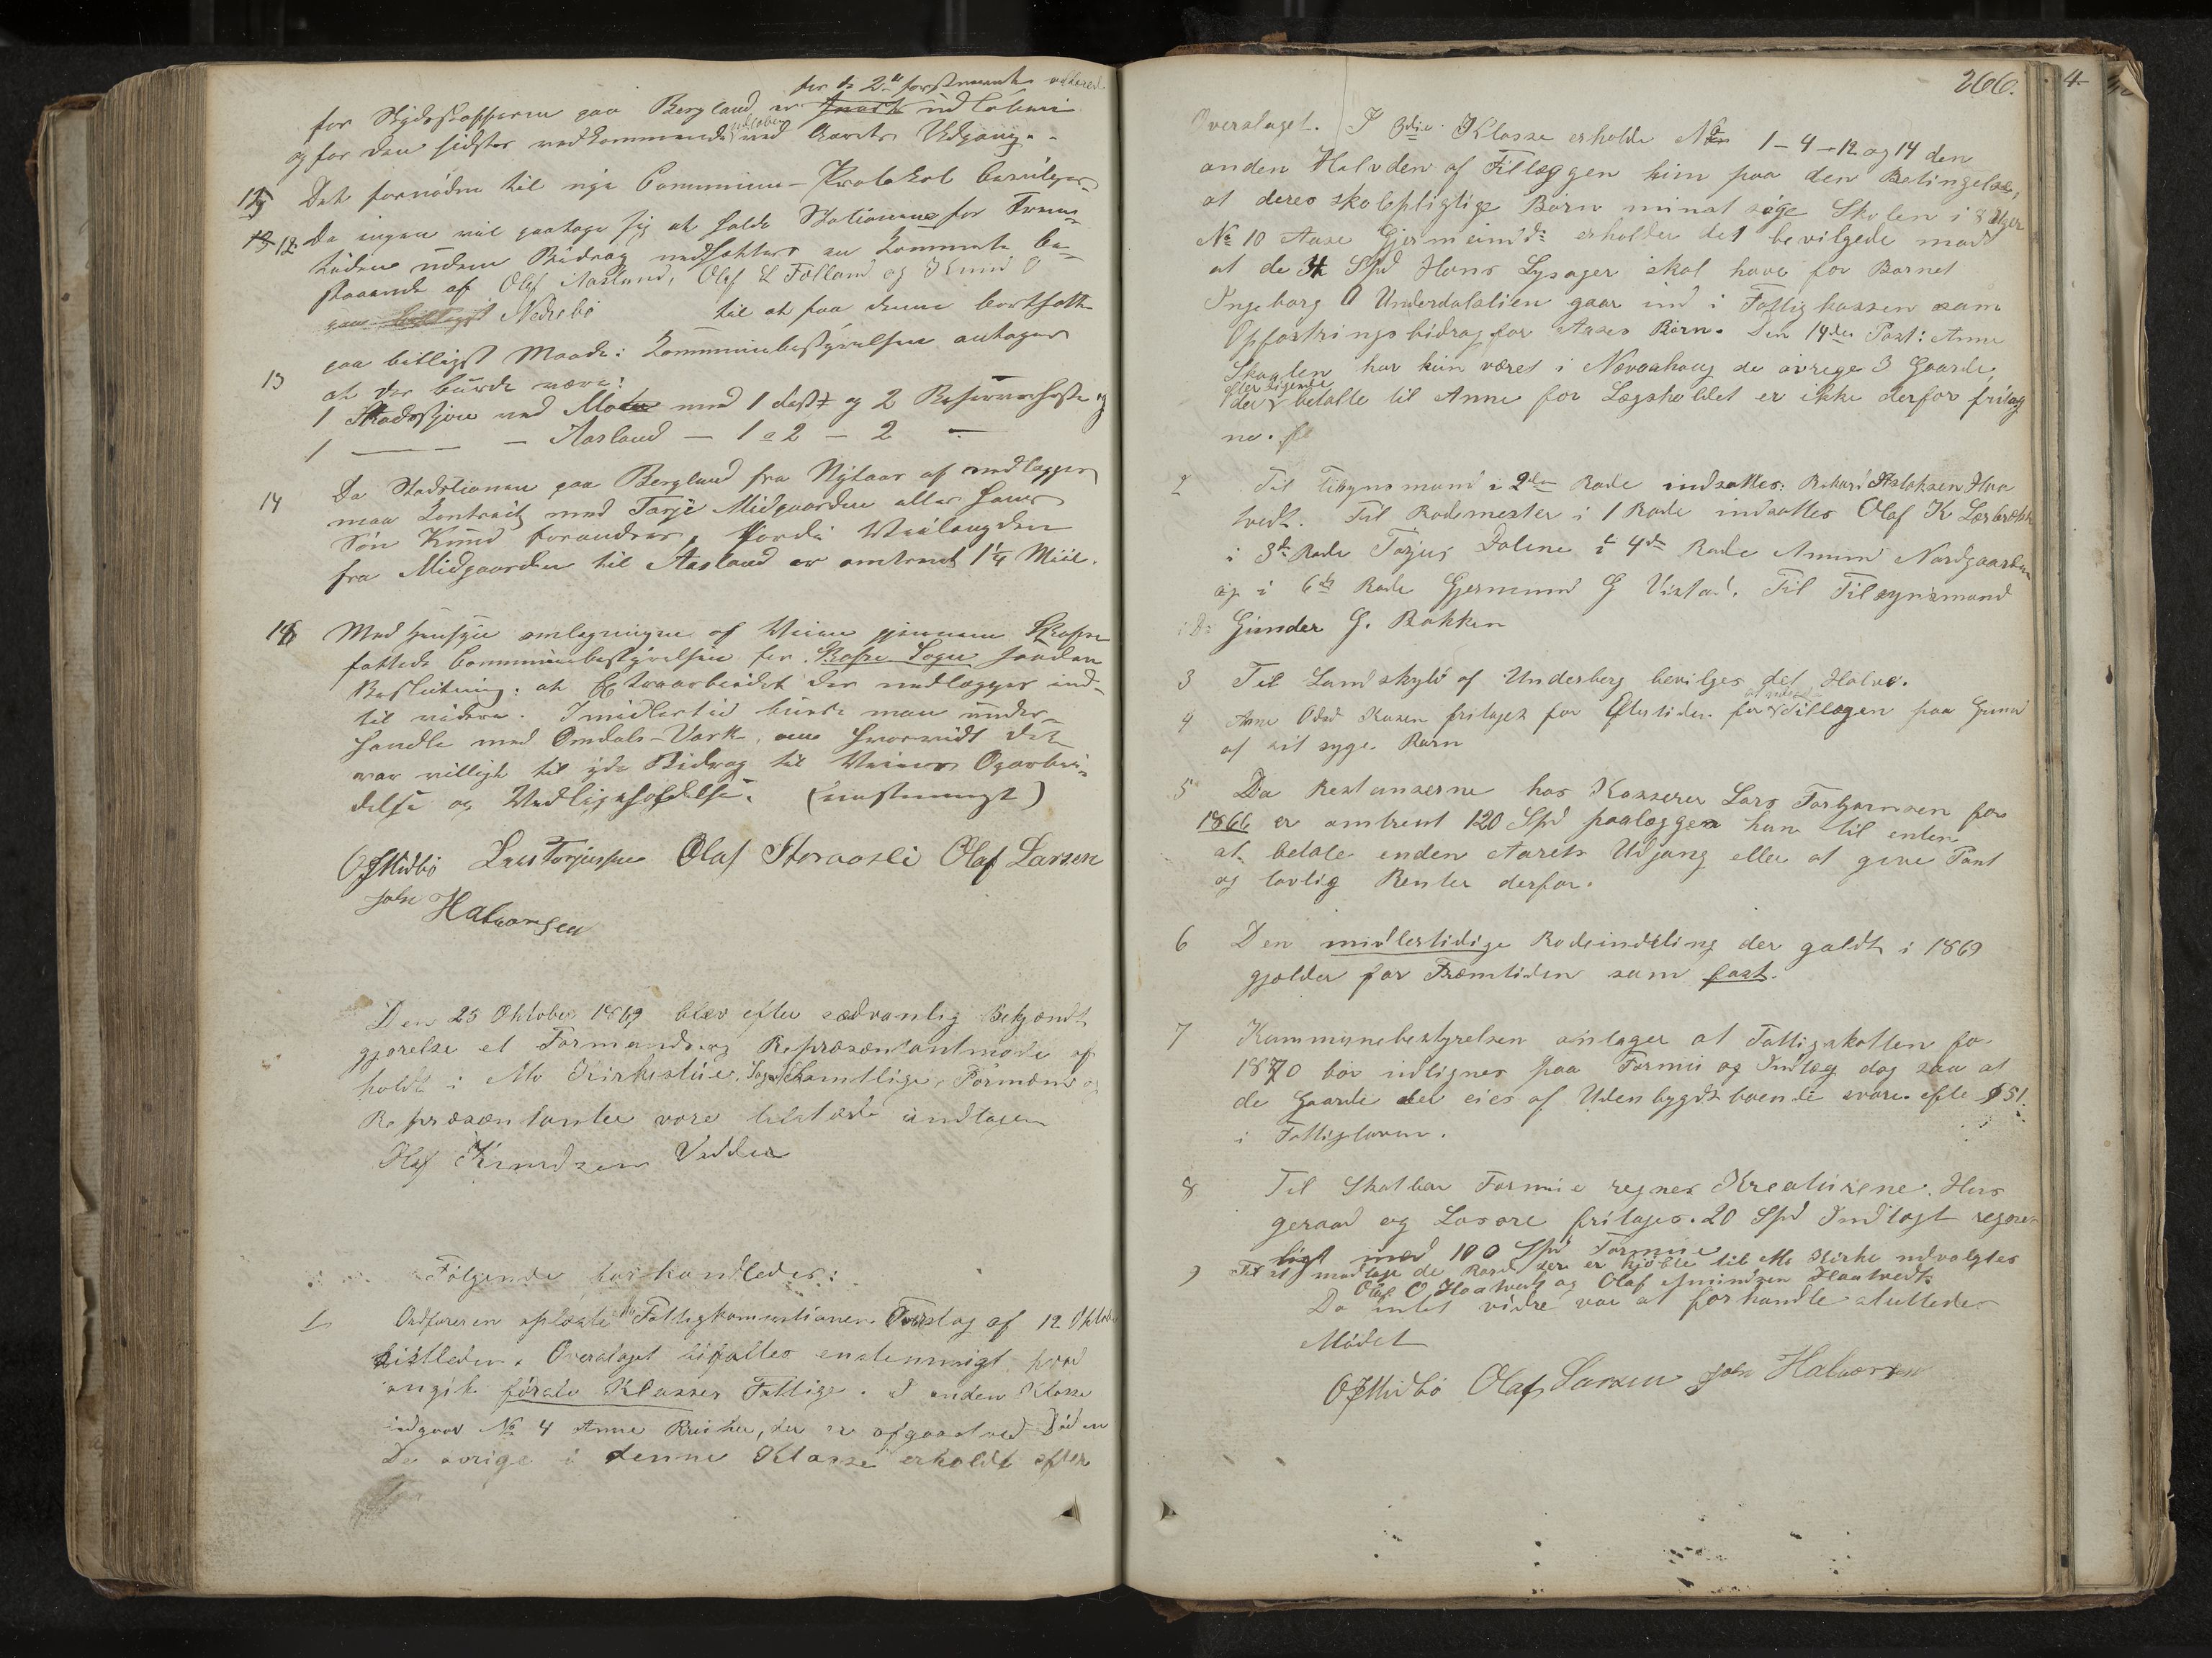 for de 2de forstnævnte vedkommende
for Skydsstafferne paa Bergland er indløben
og for den sidstes vedkommende udløber med Aarets Udgang.
Det fornødne til nye Commune-Protokol bevilges
12 Da ingen vil paatage sig at holde Stationerne for Frem-
tiden uden Bidrag nedsættes en Committe be-
staaende af Olaf Aasland, Olaf L Folland og Knud O
Nedrebø til at faa denne bortsatte
paa billigst Maade: Communebestyrelsen antager
13 at der burde være:
1 Skydsstation ved Moen med 1 fast og 2 Reservehefte og
1 — — Aasland — 1 a 2 — 2 —
14 Da Stadstionen paa Bergland fra Nytaar af nedlægges
maa Contract med Tarje Midgaarden eller hans
Søn Knud forandres, fordi Veilængden
fra Midgaarden til Aasland er omtrent 1 1/4 Miil.
Med Hensyn omlægningen af Veien gjennem Skafse
fattede Communebestyrelsen for Skafse Sogn saadan
Beslutning: at Extraarbeidet der nedlægges ind-
til videre. Imidlertid burde man under-
handle med Omdals-Værk, om hvorvidt det
var villigt til yde Bidrag til Veiens Oparbei-
delse og Vedligeholdelse. (eenstemmigt)
O J Midbö Lars Torjussen Olaf Storaasli Olaf Larsen
John Halvorsen
Den 23 Oktober 1869 blev efter sædvanlig Bekjendt
gjørelse et Formands og Repræsentantmøde af
holdt i Mo Kirkestue. Samtlige Formænd og
Repræsentanter vore tilstæde undtagen
Olaf Knudsen Vadder
Følgende forhandledes:
1 Ordføreren oplæste Fattigkomisionen Overslag af 12 Oktober
sidstleden. Overslaget bifaltes enstemmigt hvad
angik første Klasses Fattige. I anden Klasse
udgaar No 4 Anne , der er afgaaet ved Døden
De øvrige i denne Klasse erholdt efter
266.
Overslaget. I 3die Klasse erholde No 1 – 4 – 12 og 14 den
anden Halvden af Tillæggen kun paa den Betingelse,
at deres skolepligtige Børn minst søge Skolen i 8 Uger
No 10 Aase Gjermundsd: erholder det bevilgede mod
at de 4 Spd Hans Lysager skal have for Barnet
Ingeborg O Underdalslien gaar ind i Fattigkassen som
Opfostringsbidrag for Aases Børn. Den 14de Post: Anne
Skaalen har kun været i Nævaahaug de øvrege 3 Gaarde
efterligende
der betalte til Anne for Lægsholdet er ikke derfor fritag
ne.
2 Til Tilsynsmand i 2den Rode indsattes: Rikard Aslaksen Haa
tvedt. Til Rodemester i 1 Rode indsattes Olaf K
i 3de Rode Tarjus Dalene i 4de Rode Amund Nordgaarden
og i 6te Rode Gjermund G Vistad. Til Tilsynsmand
i Do Gunder G. Bakken
3 Til Landskyld af Underberg bevilges det Halve.
4 Anne Odsd Kasen fritages for Eftertiden for Tillægen paa Grund
af sit syge Barn
5 Da Restanserne hos Kasserer Lars Torbjørnsen for
1866 er omtrent 120 Spd paalægges han til enten
at betale inden Aarets Udgang eller at give Pant
og lovlig Renter derfor.
6 Den midlertidige Rodeinddeling der galdt i 1869
gjælder for Fræmtiden som fast.
7 Kommunebestyrelsen antager at Fattigskatten for
1870 bør udlignes paa Formue og Indtæg dog saa at
de Gaarde der eies af Udenbygds boende svare efter § 51
i Fattigloven.
8 Til Skatbar Formue regnes Kreaturene. Hus
geraad og Løsøre fritages. 20 Spd Indtægt regnes
ligt med 100 Spd Formue
9 Til at modtage de Rand der er kjøbte til Mo Kirke udvalgtes
Olaf O Haatvedt og Olaf Amundsen Haatvedt.
Da intet vidre var at forhandle sluttedes
Mødet
O J Midbö Olaf Larsen John Halvorsen